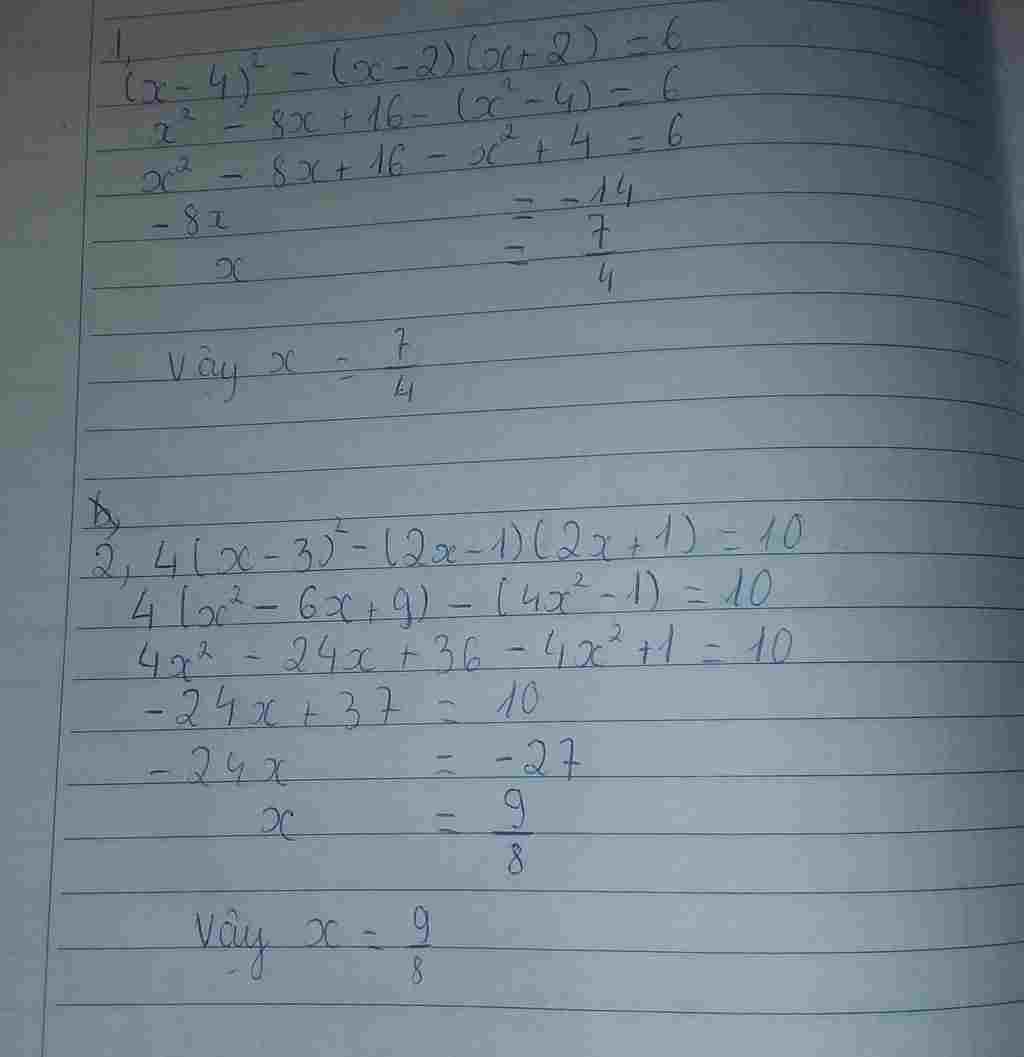 1,
(x - 4)² - (x - 2)(x + 2) = 6
x² - 8x + 16 - (x² - 4) = 6
x² - 8x + 16 - x² + 4 = 6
-8x = -14
x = 7/4
Vậy x = 7/4
2, 4(x - 3)² - (2x - 1)(2x + 1) = 10
4(x² - 6x + 9) - (4x² - 1) = 10
4x² - 24x + 36 - 4x² + 1 = 10
-24x + 37 = 10
-24x = -27
x = 9/8
Vậy x = 9/8